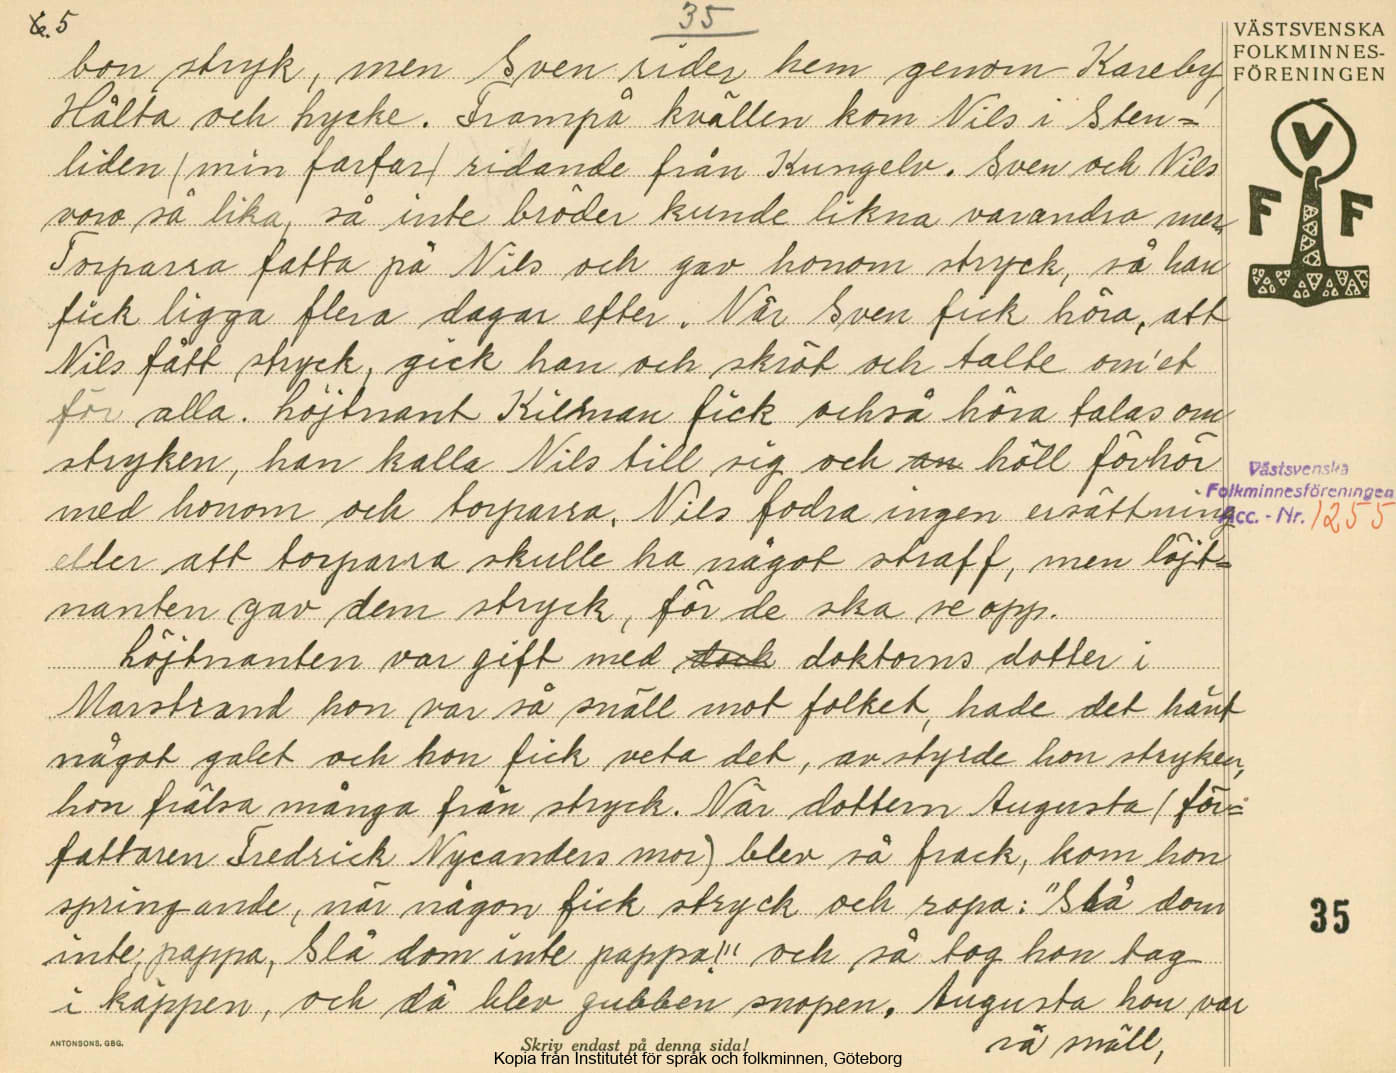 6.5
35
VÄSTSVENSKA
FOLKMINNES-
FÖRENINGEN
V
F F
bon stryk, men Sven rider hem genom Kareby,
Hålta och hycke. Frampå kvällen kom Nils i Sten=
liden (min farfar) ridande från Kungelv. Sven och Nils
voro så lika, så inte bröder kunde likna varandra mer,
Torparra fatta på Nils och gav honom stryck, så han
fick ligga flera dagar efter. När Sven fick höra, att
Nils fått stryck, gick han och skröt och talte om'et
för alla. Löjtnant Kilman fick också höra talas om
stryken, han kalla Nils till sig och an höll förhör
med honom och torparra. Nils fodra ingen ersättning
eller att torparra skulle ha något straff, men löjt=
nanten gav dem stryck, för de ska se opp.
Löjtnanten var gift med dock doktorns dotter i
Marstrand hon var så snäll mot folket, hade det hänt
något galet och hon fick veta det, avstyrde hon stryken,
hon frälsa många från stryck. När dottern Augusta (för=
fattaren Fredrick Nycanders mor) blev så frack, kom hon
springande, när någon fick stryck och ropa: "Slå dom
inte, pappa, Slå dom inte pappa!" och så tog hon tag
i käppen, och då blev gubben snopen. Augusta hon var
så snäll,
Västsvenska
Folkminnesföreningen
Acc. - Nr. 1255
35
ANTONSONS, GBG.
Skriv endast på denna sida!
Kopia från Institutet för språk och folkminnen, Göteborg